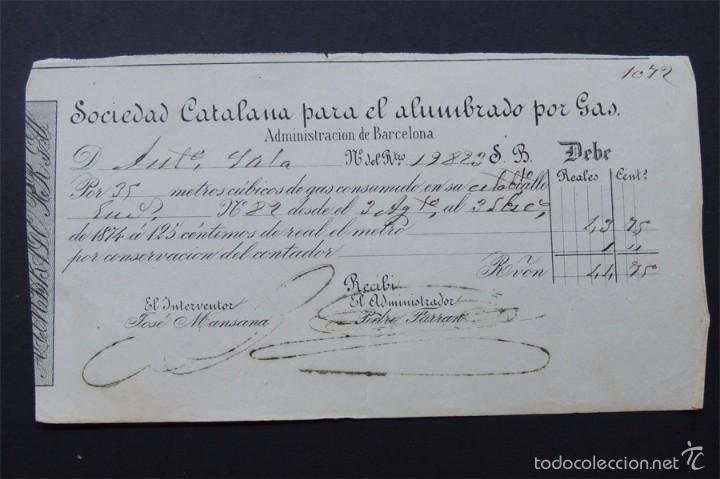 1072
Sociedad Catalana para el alumbrado por Gas.
Administracion de Barcelona
D Antº. Sala Nº del Rtto 19823 S. B. Debe
Por 35 metros cúbicos de gas consumido en su calle Reales Centˢ
Nº 82 desde el 2 Agtº. al 3 43 75
de 1874 á 125 céntimos de real el metro
por conservacion del contador 1 "
R.ˢ von 44 75
Recibí
El Interventor El Administrador
José Mansana Pedro Farran
todocoleccion.net
tc